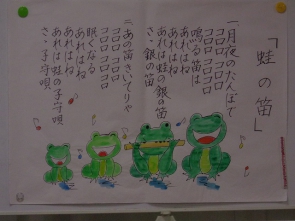 「蛙の笛」
一月夜のたんぼで
コロロ コロロ
コロロ コロコロ
鳴る笛は
あれはね
あれはね
あれは蛙の銀の笛
さゝ銀の笛
二あの笛きいてりゃ
コロロ コロロ
コロロ コロコロ
眠くなる
あれはね
あれはね
あれは蛙の子守唄
さゝ子守唄